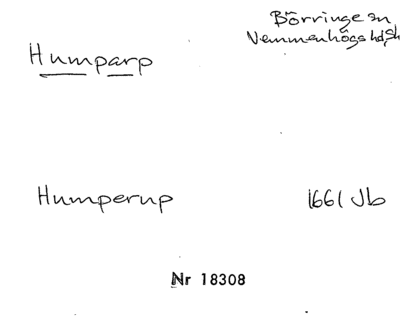 Börringe sn
Vemmenhögs hd, Sk
Humparp
Humperup 1661 Jb
Nr 18308